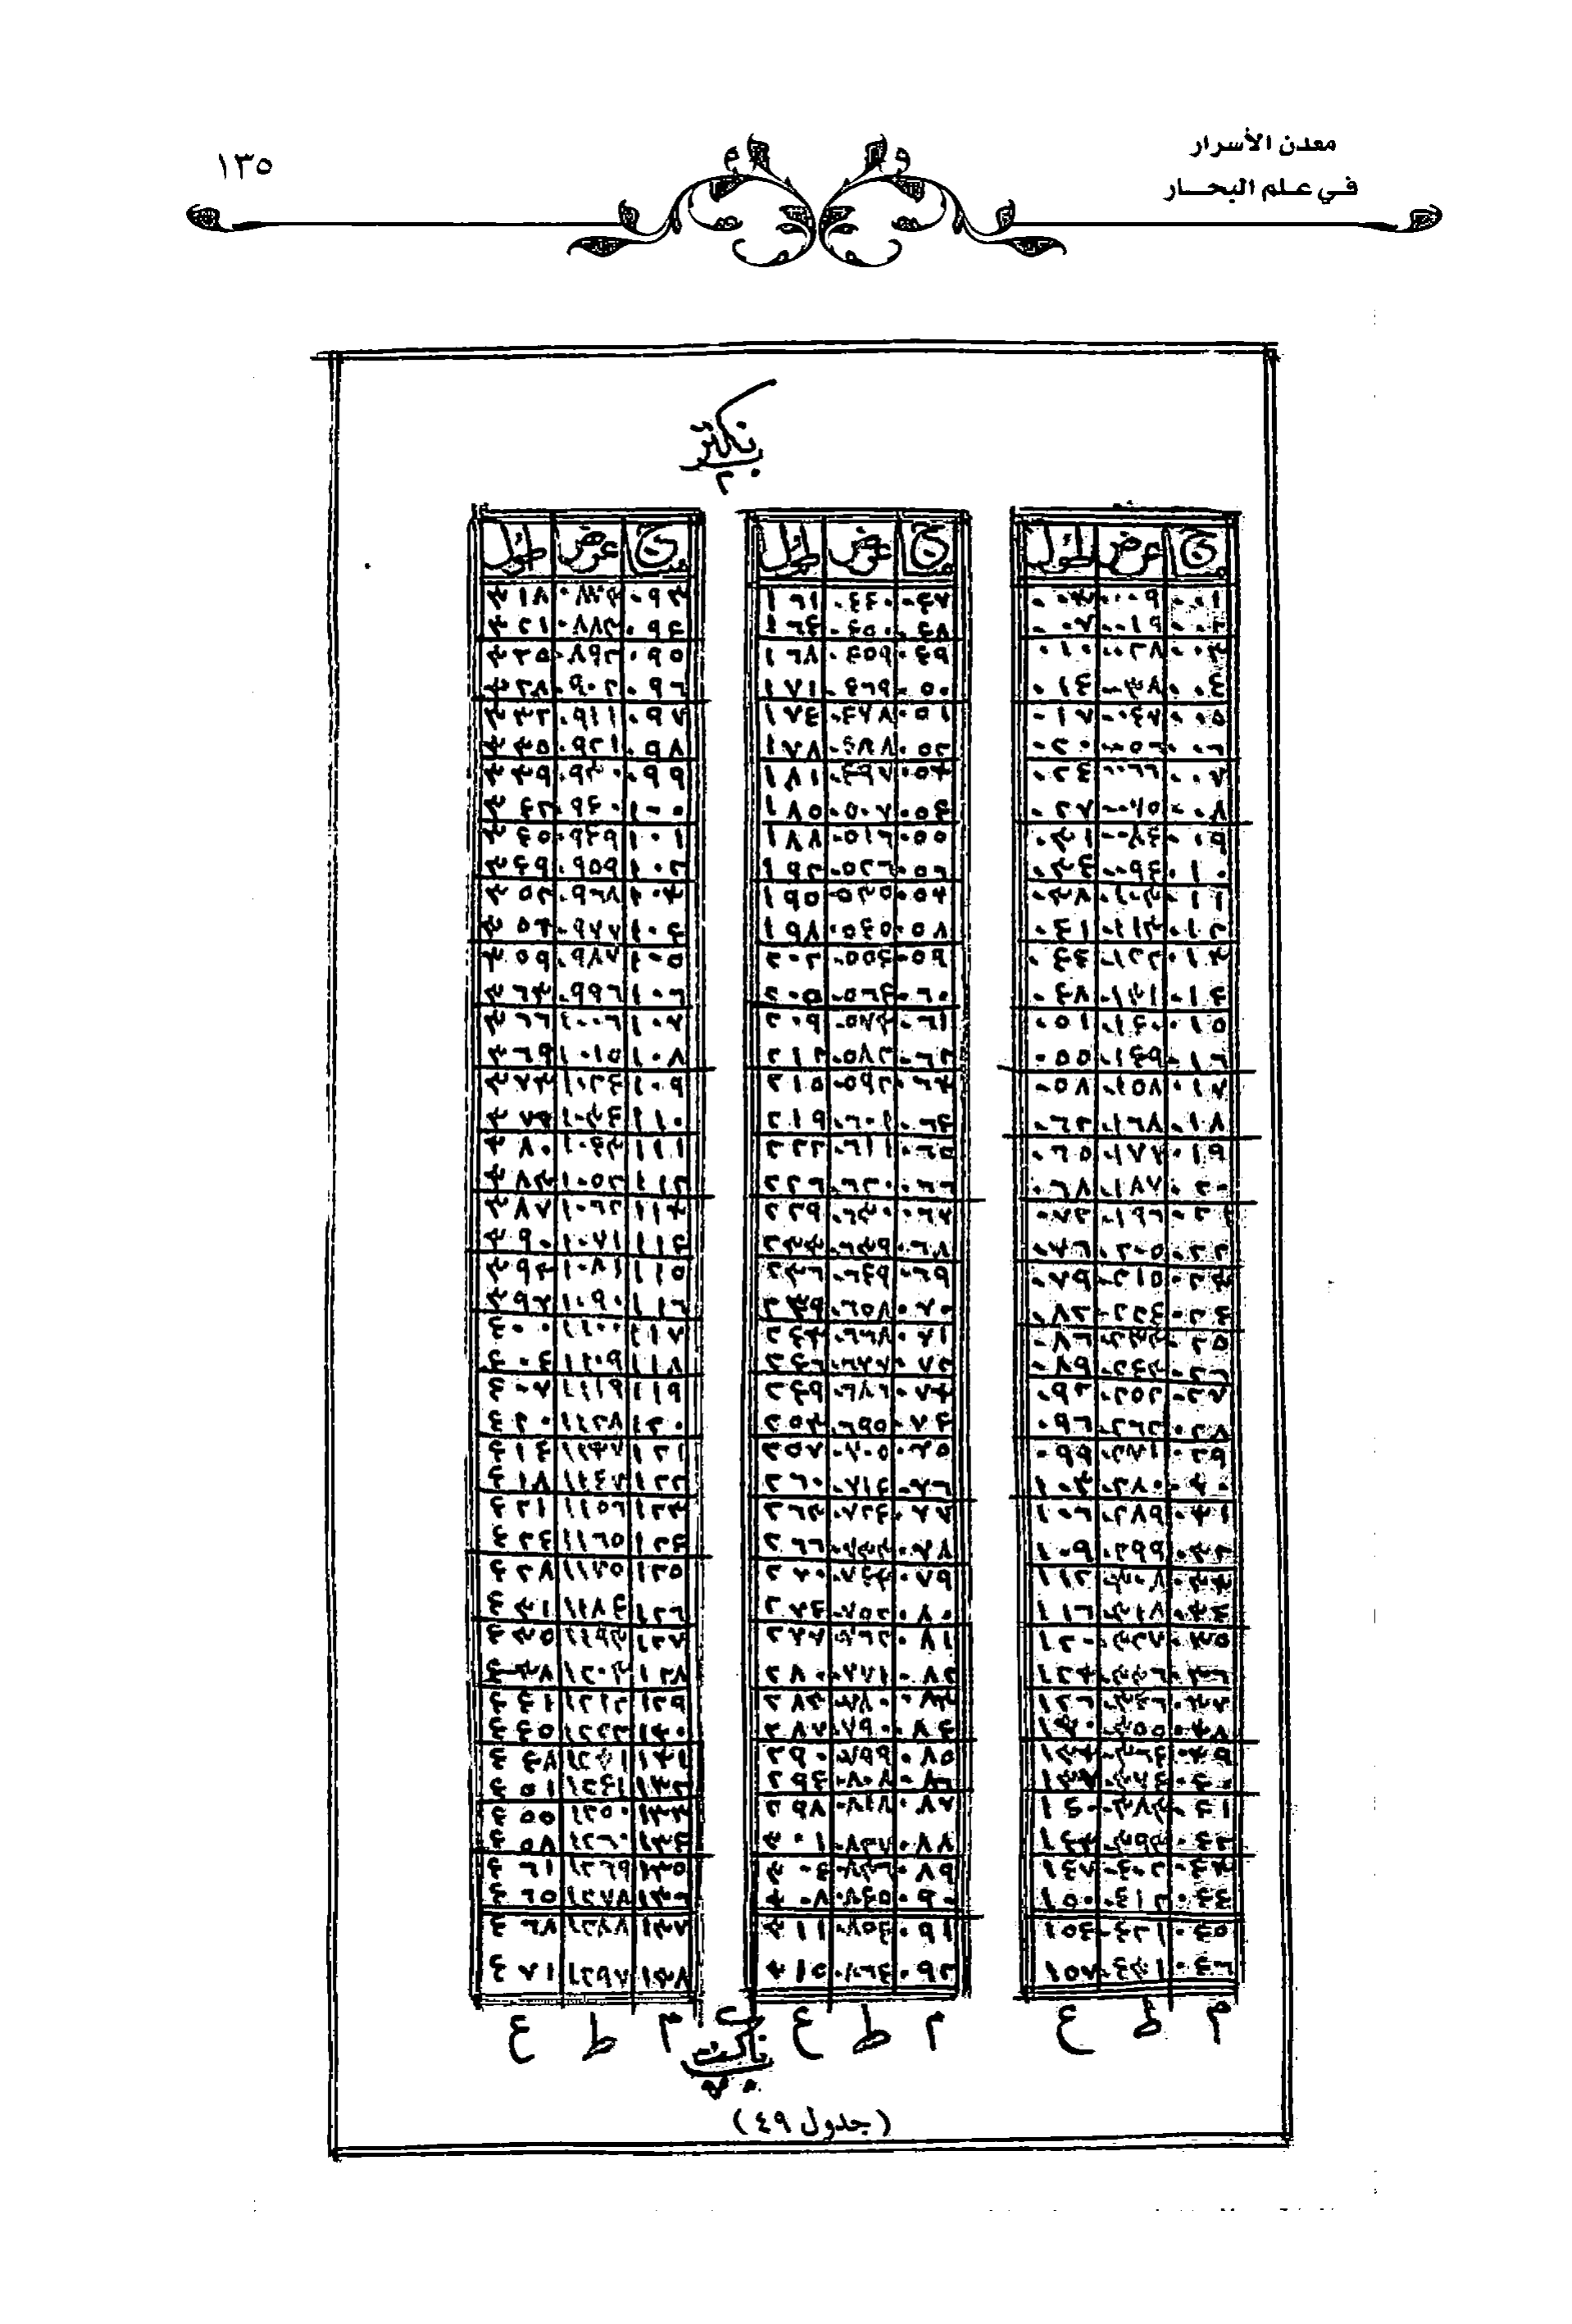 معدن الأسرار
في علم البحار
١٣٥
عرض طول
٠٠١ ٠٠٩ ٠٠٣
٠٠٢ ٠١٩ ٠٠٧
٠٠٣ ٠٢٨ ٠١٠
٠٠٤ ٠٣٨ ٠١٤
٠٠٥ ٠٤٧ ٠١٧
٠٠٦ ٠٥٦ ٠٢٠
٠٠٧ ٠٦٦ ٠٢٤
٠٠٨ ٠٧٥ ٠٢٧
٠٠٩ ٠٨٤ ٠٣١
٠١٠ ٠٩٤ ٠٣٤
٠١١ ١٠٣ ٠٣٨
٠١٢ ١١٣ ٠٤١
٠١٣ ١٢٢ ٠٤٤
٠١٤ ١٣١ ٠٤٨
٠١٥ ١٤٠ ٠٥١
٠١٦ ١٤٩ ٠٥٥
٠١٧ ١٥٨ ٠٥٨
٠١٨ ١٦٨ ٠٦٢
٠١٩ ١٧٧ ٠٦٥
٠٢٠ ١٨٧ ٠٦٨
٠٢١ ١٩٦ ٠٧٢
٠٢٢ ٢٠٥ ٠٧٦
٠٢٣ ٢١٥ ٠٧٩
٠٢٤ ٢٢٤ ٠٨٢
٠٢٥ ٢٣٣ ٠٨٦
٠٢٦ ٢٤٣ ٠٨٩
٠٢٧ ٢٥٢ ٠٩٢
٠٢٨ ٢٦٢ ٠٩٦
٠٢٩ ٢٧١ ٠٩٩
٠٣٠ ٢٨٠ ١٠٣
٠٣١ ٢٨٩ ١٠٦
٠٣٢ ٢٩٩ ١٠٩
٠٣٣ ٣٠٨ ١١٢
٠٣٤ ٣١٨ ١١٦
٠٣٥ ٣٢٧ ١٢٠
٠٣٦ ٣٣٦ ١٢٣
٠٣٧ ٣٤٦ ١٢٦
٠٣٨ ٣٥٥ ١٣٠
٠٣٩ ٣٦٤ ١٣٣
٠٤٠ ٣٧٤ ١٣٧
٠٤١ ٣٨٣ ١٤٠
٠٤٢ ٣٩٣ ١٤٣
٠٤٣ ٤٠٢ ١٤٧
٠٤٤ ٤١٢ ١٥٠
٠٤٥ ٤٢٢ ١٥٤
٠٤٦ ٤٣١ ١٥٧
م ط ع
عرض طول
٠٤٧ ٠٤٤٠ ١٦١
٠٤٨ ٠٤٥٠ ١٦٤
٠٤٩ ٠٤٥٩ ١٦٨
٠٥٠ ٠٤٦٩ ١٧١
٠٥١ ٠٤٧٨ ١٧٤
٠٥٢ ٠٤٨٨ ١٧٨
٠٥٣ ٠٤٩٧ ١٨١
٠٥٤ ٠٥٠٧ ١٨٥
٠٥٥ ٠٥١٦ ١٨٨
٠٥٦ ٠٥٢٦ ١٩٢
٠٥٧ ٠٥٣٥ ١٩٥
٠٥٨ ٠٥٤٥ ١٩٨
٠٥٩ ٠٥٥٤ ٢٠٢
٠٦٠ ٠٥٦٤ ٢٠٥
٠٦١ ٠٥٧٣ ٢٠٩
٠٦٢ ٠٥٨٢ ٢١٢
٠٦٣ ٠٥٩٢ ٢١٥
٠٦٤ ٠٦٠١ ٢١٩
٠٦٥ ٠٦١١ ٢٢٢
٠٦٦ ٠٦٢٠ ٢٢٦
٠٦٧ ٠٦٣٠ ٢٢٩
٠٦٨ ٠٦٣٩ ٢٣٣
٠٦٩ ٠٦٤٩ ٢٣٦
٠٧٠ ٠٦٥٨ ٢٣٩
٠٧١ ٠٦٦٨ ٢٤٣
٠٧٢ ٠٦٧٧ ٢٤٦
٠٧٣ ٠٦٨٦ ٢٤٩
٠٧٤ ٠٦٩٥ ٢٥٣
٠٧٥ ٠٧٠٥ ٢٥٧
٠٧٦ ٠٧١٤ ٢٦٠
٠٧٧ ٠٧٢٤ ٢٦٣
٠٧٨ ٠٧٣٣ ٢٦٦
٠٧٩ ٠٧٤٣ ٢٧٠
٠٨٠ ٠٧٥٢ ٢٧٤
٠٨١ ٠٧٦٢ ٢٧٧
٠٨٢ ٠٧٧١ ٢٨٠
٠٨٣ ٠٧٨٠ ٢٨٣
٠٨٤ ٠٧٩٠ ٢٨٧
٠٨٥ ٠٧٩٩ ٢٩٠
٠٨٦ ٠٨٠٨ ٢٩٤
٠٨٧ ٠٨١٨ ٢٩٨
٠٨٨ ٠٨٢٧ ٣٠١
٠٨٩ ٠٨٣٦ ٣٠٤
٠٩٠ ٠٨٤٥ ٣٠٨
٠٩١ ٠٨٥٤ ٣١١
٠٩٢ ٠٨٦٤ ٣١٥
م ط ع
عرض طول
٠٩٣ ٠٨٧٣ ٣١٨
٠٩٤ ٠٨٨٣ ٣٢١
٠٩٥ ٠٨٩٢ ٣٢٥
٠٩٦ ٠٩٠٢ ٣٢٨
٠٩٧ ٠٩١١ ٣٣٢
٠٩٨ ٠٩٢١ ٣٣٥
٠٩٩ ٠٩٣٠ ٣٣٩
١٠٠ ٠٩٤٠ ٣٤٢
١٠١ ٠٩٤٩ ٣٤٥
١٠٢ ٠٩٥٩ ٣٤٩
١٠٣ ٠٩٦٨ ٣٥٢
١٠٤ ٠٩٧٧ ٣٥٦
١٠٥ ٠٩٨٧ ٣٥٩
١٠٦ ٠٩٩٦ ٣٦٣
١٠٧ ١٠٠٦ ٣٦٦
١٠٨ ١٠١٥ ٣٦٩
١٠٩ ١٠٢٤ ٣٧٣
١١٠ ١٠٣٤ ٣٧٦
١١١ ١٠٤٣ ٣٨٠
١١٢ ١٠٥٢ ٣٨٣
١١٣ ١٠٦٢ ٣٨٧
١١٤ ١٠٧١ ٣٩٠
١١٥ ١٠٨١ ٣٩٣
١١٦ ١٠٩٠ ٣٩٧
١١٧ ١١٠٠ ٤٠٠
١١٨ ١١٠٩ ٤٠٤
١١٩ ١١١٩ ٤٠٧
١٢٠ ١١٢٨ ٤١٠
١٢١ ١١٣٧ ٤١٤
١٢٢ ١١٤٧ ٤١٨
١٢٣ ١١٥٦ ٤٢١
١٢٤ ١١٦٥ ٤٢٤
١٢٥ ١١٧٥ ٤٢٨
١٢٦ ١١٨٤ ٤٣١
١٢٧ ١١٩٣ ٤٣٥
١٢٨ ١٢٠٣ ٤٣٨
١٢٩ ١٢١٢ ٤٤١
١٣٠ ١٢٢٢ ٤٤٥
١٣١ ١٢٣١ ٤٤٨
١٣٢ ١٢٤١ ٤٥١
١٣٣ ١٢٥٠ ٤٥٥
١٣٤ ١٢٦٠ ٤٥٨
١٣٥ ١٢٦٩ ٤٦١
١٣٦ ١٢٧٨ ٤٦٥
١٣٧ ١٢٨٨ ٤٦٨
١٣٨ ١٢٩٧ ٤٧١
م ط ع
(جدول ٤٩)